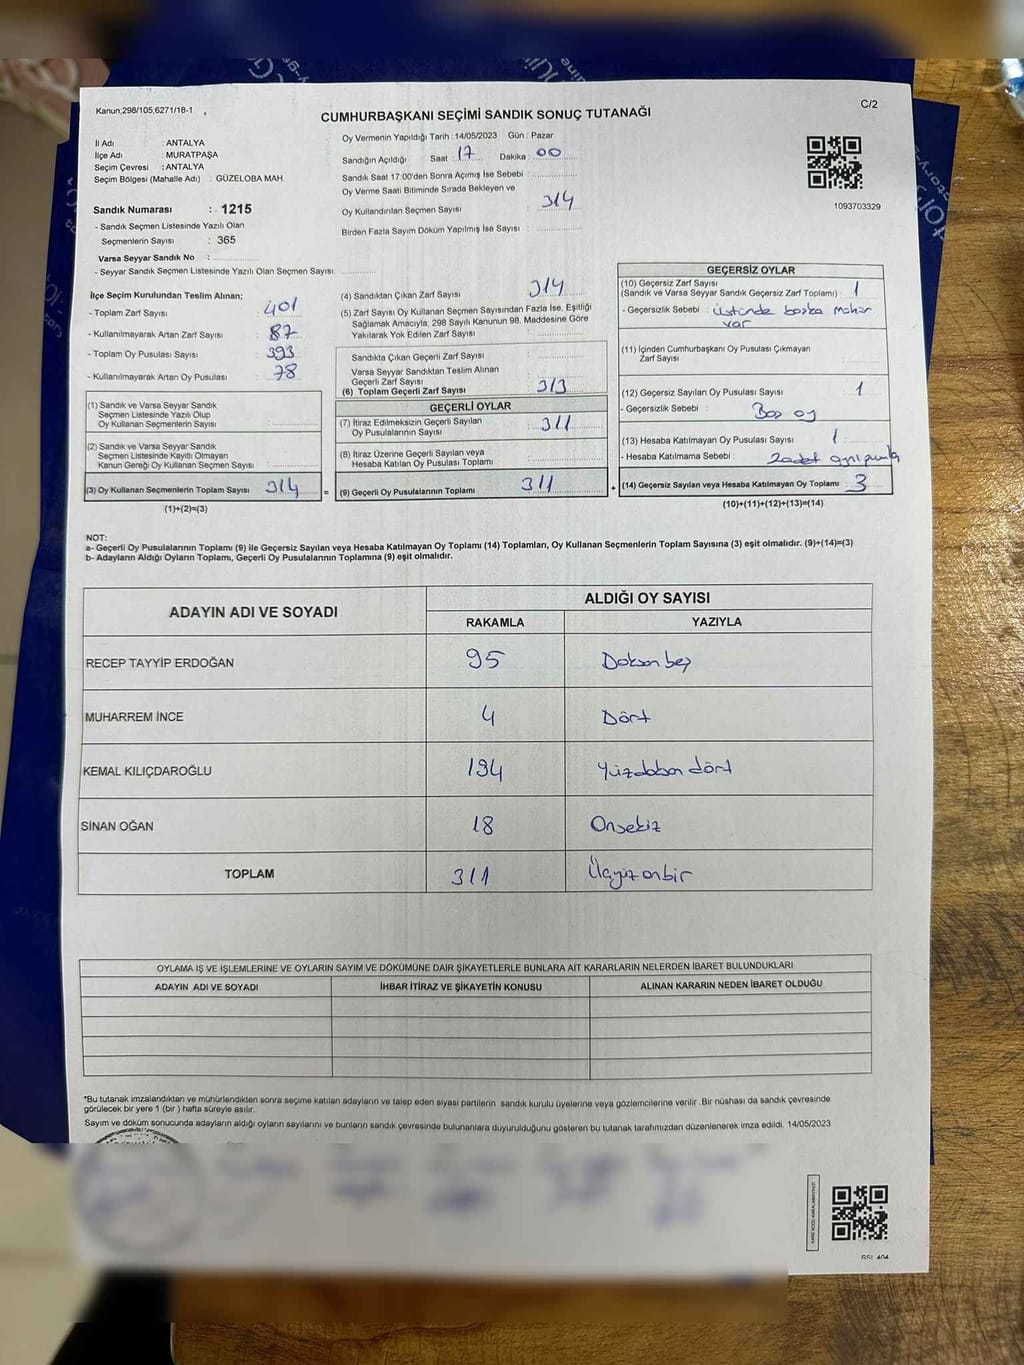 Kanun;298/105,6271/18-1
CUMHURBAŞKANI SEÇİMİ SANDIK SONUÇ TUTANAĞI
C/2
İl Adı : ANTALYA
İlçe Adı : MURATPAŞA
Seçim Çevresi : ANTALYA
Seçim Bölgesi (Mahalle Adı) : GÜZELOBA MAH.
Sandık Numarası : 1215
- Sandık Seçmen Listesinde Yazılı Olan
Seçmenlerin Sayısı : 365
Varsa Seyyar Sandık No :
- Seyyar Sandık Seçmen Listesinde Yazılı Olan Seçmen Sayısı:
Oy Vermenin Yapıldığı Tarih : 14/05/2023 Gün : Pazar
Sandığın Açıldığı Saat : 17 Dakika : 00
Sandık Saat 17:00'den Sonra Açımış İse Sebebi :
Oy Verme Saati Bitiminde Sırada Bekleyen ve
Oy Kullandırılan Seçmen Sayısı : 314
Birden Fazla Sayım Döküm Yapılmış İse Sayısı :
1093703329
İlçe Seçim Kurulundan Teslim Alınan;
- Toplam Zarf Sayısı : 401
- Kullanılmayarak Artan Zarf Sayısı : 87
- Toplam Oy Pusulası Sayısı : 393
- Kullanılmayarak Artan Oy Pusulası : 78
(1) Sandık ve Varsa Seyyar Sandık
Seçmen Listesinde Yazılı Olup
Oy Kullanan Seçmenlerin Sayısı :
(2) Sandık ve Varsa Seyyar Sandık
Seçmen Listesinde Kayıtlı Olmayan
Kanun Gereği Oy Kullanan Seçmen Sayısı :
(3) Oy Kullanan Seçmenlerin Toplam Sayısı : 314
(1)+(2)=(3)
(4) Sandıktan Çıkan Zarf Sayısı : 314
(5) Zarf Sayısı Oy Kullanan Seçmen Sayısından Fazla İse, Eşitliği
Sağlamak Amacıyla; 298 Sayılı Kanunun 98. Maddesine Göre
Yakılarak Yok Edilen Zarf Sayısı :
Sandıkta Çıkan Geçerli Zarf Sayısı :
Varsa Seyyar Sandıktan Teslim Alınan
Geçerli Zarf Sayısı :
(6) Toplam Geçerli Zarf Sayısı : 313
GEÇERLİ OYLAR
(7) İtiraz Edilmeksizin Geçerli Sayılan
Oy Pusulalarının Sayısı : 311
(8) İtiraz Üzerine Geçerli Sayılan veya
Hesaba Katılan Oy Pusulası Toplamı :
= (9) Geçerli Oy Pusulalarının Toplamı : 311 +
GEÇERSİZ OYLAR
(10) Geçersiz Zarf Sayısı
(Sandık ve Varsa Seyyar Sandık Geçersiz Zarf Toplamı) : 1
- Geçersizlik Sebebi : üstünde başka mühür
var
(11) İçinden Cumhurbaşkanı Oy Pusulası Çıkmayan
Zarf Sayısı :
(12) Geçersiz Sayılan Oy Pusulası Sayısı : 1
- Geçersizlik Sebebi : Boş oy
(13) Hesaba Katılmayan Oy Pusulası Sayısı : 1
- Hesaba Katılmama Sebebi : 2 adet aynı pusula
(14) Geçersiz Sayılan veya Hesaba Katılmayan Oy Toplamı : 3
(10)+(11)+(12)+(13)=(14)
NOT:
a- Geçerli Oy Pusulalarının Toplamı (9) ile Geçersiz Sayılan veya Hesaba Katılmayan Oy Toplamı (14) Toplamları, Oy Kullanan Seçmenlerin Toplam Sayısına (3) eşit olmalıdır. (9)+(14)=(3)
b- Adayların Aldığı Oyların Toplamı, Geçerli Oy Pusulalarının Toplamına (9) eşit olmalıdır.
ADAYIN ADI VE SOYADI
ALDIĞI OY SAYISI
RAKAMLA YAZIYLA
RECEP TAYYİP ERDOĞAN 95 Doksan beş
MUHARREM İNCE 4 Dört
KEMAL KILIÇDAROĞLU 194 Yüzdoksan dört
SİNAN OĞAN 18 Onsekiz
TOPLAM 311 Üçyüz onbir
OYLAMA İŞ VE İŞLEMLERİNE VE OYLARIN SAYIM VE DÖKÜMÜNE DAİR ŞİKAYETLERLE BUNLARA AİT KARARLARIN NELERDEN İBARET BULUNDUKLARI
ADAYIN ADI VE SOYADI İHBAR İTİRAZ VE ŞİKAYETİN KONUSU ALINAN KARARIN NEDEN İBARET OLDUĞU
*Bu tutanak imzalandıktan ve mühürlendikten sonra seçime katılan adayların ve talep eden siyasi partilerin sandık kurulu üyelerine veya gözlemcilerine verilir .Bir nüshası da sandık çevresinde
görülecek bir yere 1 (bir ) hafta süreyle asılır.
Sayım ve döküm sonucunda adayların aldığı oyların sayılarını ve bunların sandık çevresinde bulunanlara duyurulduğunu gösteren bu tutanak tarafımızdan düzenlenerek imza edildi. 14/05/2023